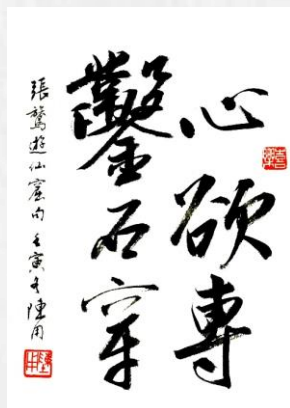 心欲專
鑿石穿
張鷟遊仙窟句壬寅冬陳用